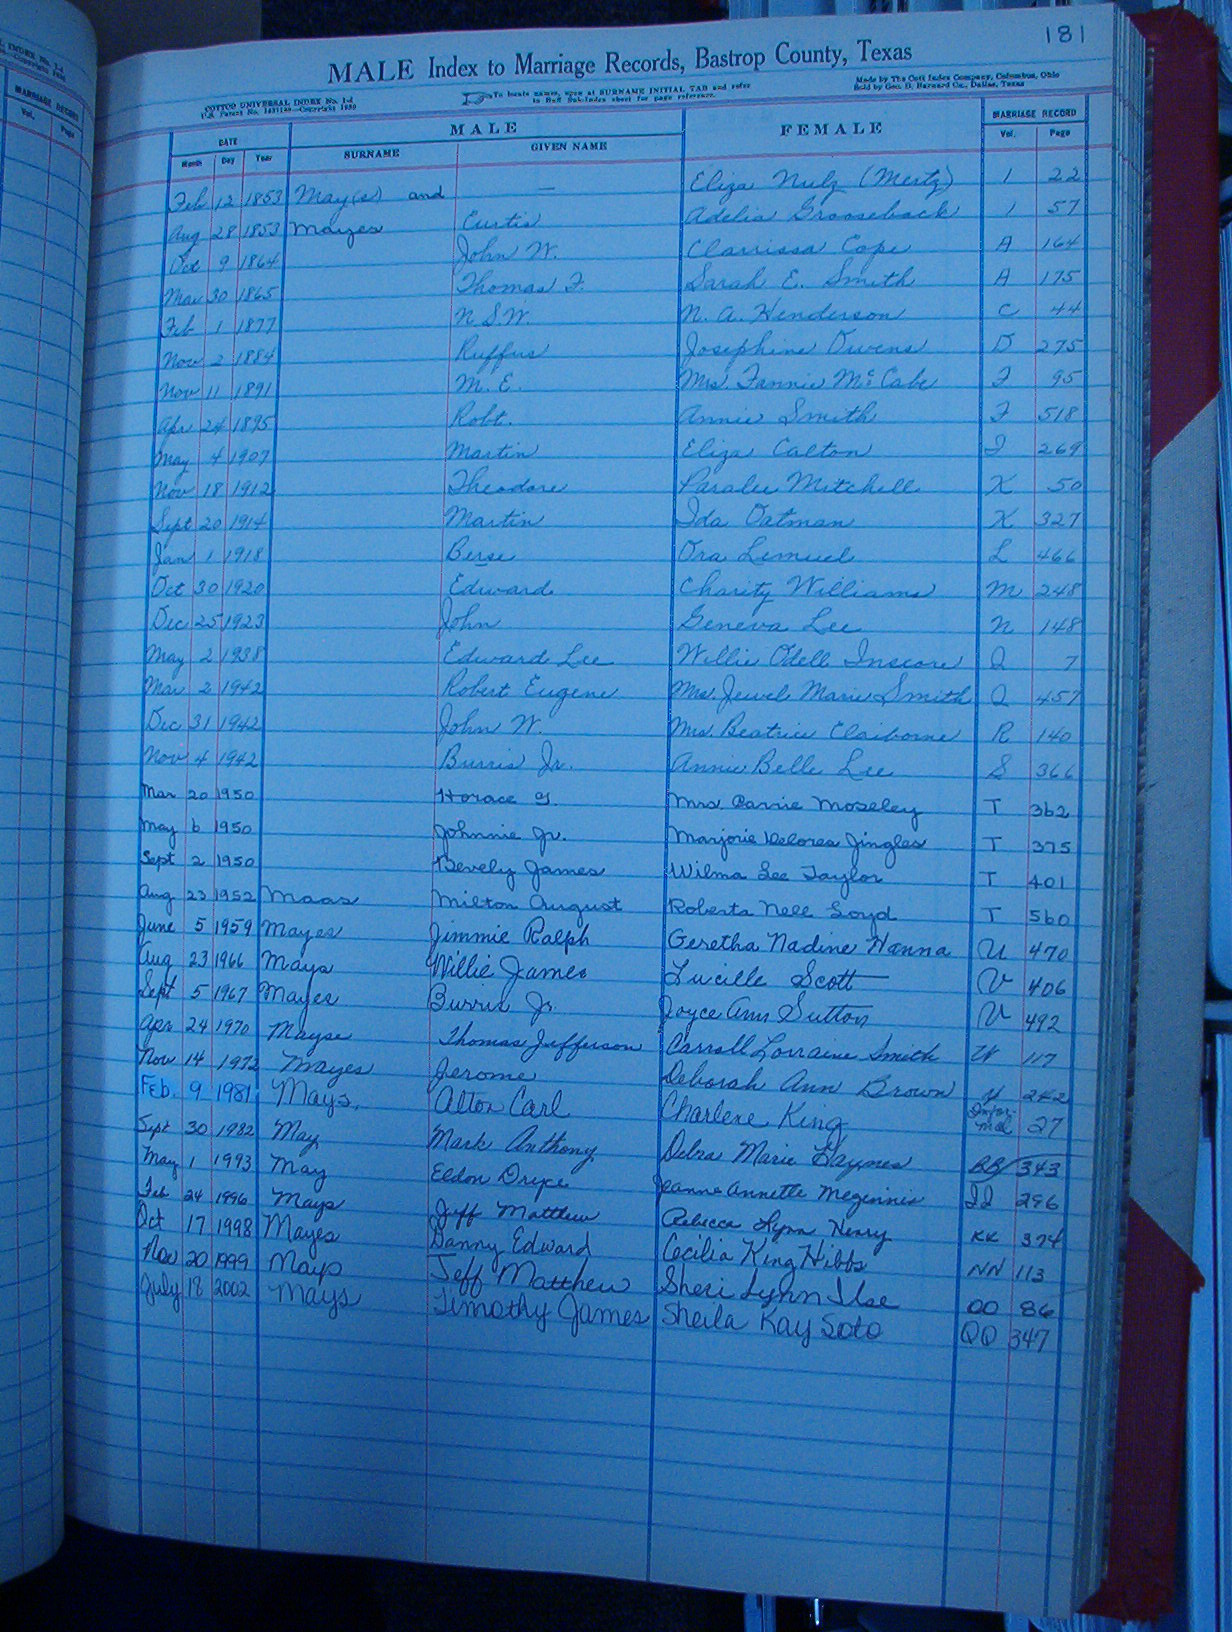 181
MALE Index to Marriage Records, Bastrop County, Texas
COTTCO UNIVERSAL INDEX No. 1-d
To locate names, open at SURNAME INITIAL TAB and refer
Made by The Cott Index Company, Columbus, Ohio
Sold by Geo. D. Barnard Co., Dallas, Texas
DATE MALE FEMALE MARRIAGE RECORD
Month Day Year SURNAME GIVEN NAME Vol. Page
Feb 12 1853 May(s) and — Eliza Nulz (Mertz) 1 22
Aug 28 1853 Mayes Curtis Adelia Grooseback 1 57
Oct 9 1864 John W. Clarrissa Cope A 164
Mar 30 1865 Thomas F. Sarah E. Smith A 175
Feb 1 1877 N S.W. N. A. Henderson C 44
Nov 2 1884 Ruffus Josephine Owens D 275
Nov 11 1891 M. E. Mrs Fannie McCabe F 95
Apr 24 1895 Robt. Annie Smith F 518
May 4 1907 Martin Eliza Calton I 269
Nov 18 1912 Theodore Paralee Mitchell K 50
Sept 20 1914 Martin Ida Oatman K 327
Jan 1 1918 Berse Ora Lemuel L 466
Oct 30 1920 Edward Charity Williams M 248
Dec 25 1923 John Geneva Lee N 148
May 2 1938 Edward Lee Willie Odell Inscore Q 7
Mar 2 1942 Robert Eugene Mrs. Jewel Marie Smith Q 457
Dec 31 1942 John W. Mrs Beatrice Claiborne R 140
Nov 4 1942 Burris Jr. Annie Belle Lee S 366
Mar 20 1950 Horace G. Mrs Carrie Moseley T 362
May 6 1950 Johnnie Jr. Marjorie Delores Jingles T 375
Sept 2 1950 Bevely James Wilma Lee Taylor T 401
Aug 23 1952 Maas Milton August Roberta Nell Loyd T 560
June 5 1959 Mayes Jimmie Ralph Geretha Nadine Hanna U 470
Aug 23 1966 Mays Willie James Lucille Scott V 406
Sept 5 1967 Mayes Burris Jr. Joyce Ann Sutton V 492
Apr 24 1970 Mayse Thomas Jefferson Carroll Lorraine Smith W 117
Nov 14 1972 Mayes Jerome Deborah Ann Brown Y 242
Feb. 9 1981 Mays. Alton Carl Charlene King Infor-mal 27
Sept 30 1982 May Mark Anthony Debra Marie Haynes BB 343
May 1 1993 May Eldon Dryce Jeanne Annette Meginnis II 296
Feb 24 1996 Mays Jeff Matthew Rebecca Lynn Henry KK 374
Oct 17 1998 Mayes Danny Edward Cecilia King Hibbs NN 113
Nov 20 1999 Mays Jeff Matthew Sheri Lynn Ilse OO 86
July 18 2002 Mays Timothy James Sheila Kay Soto QQ 347